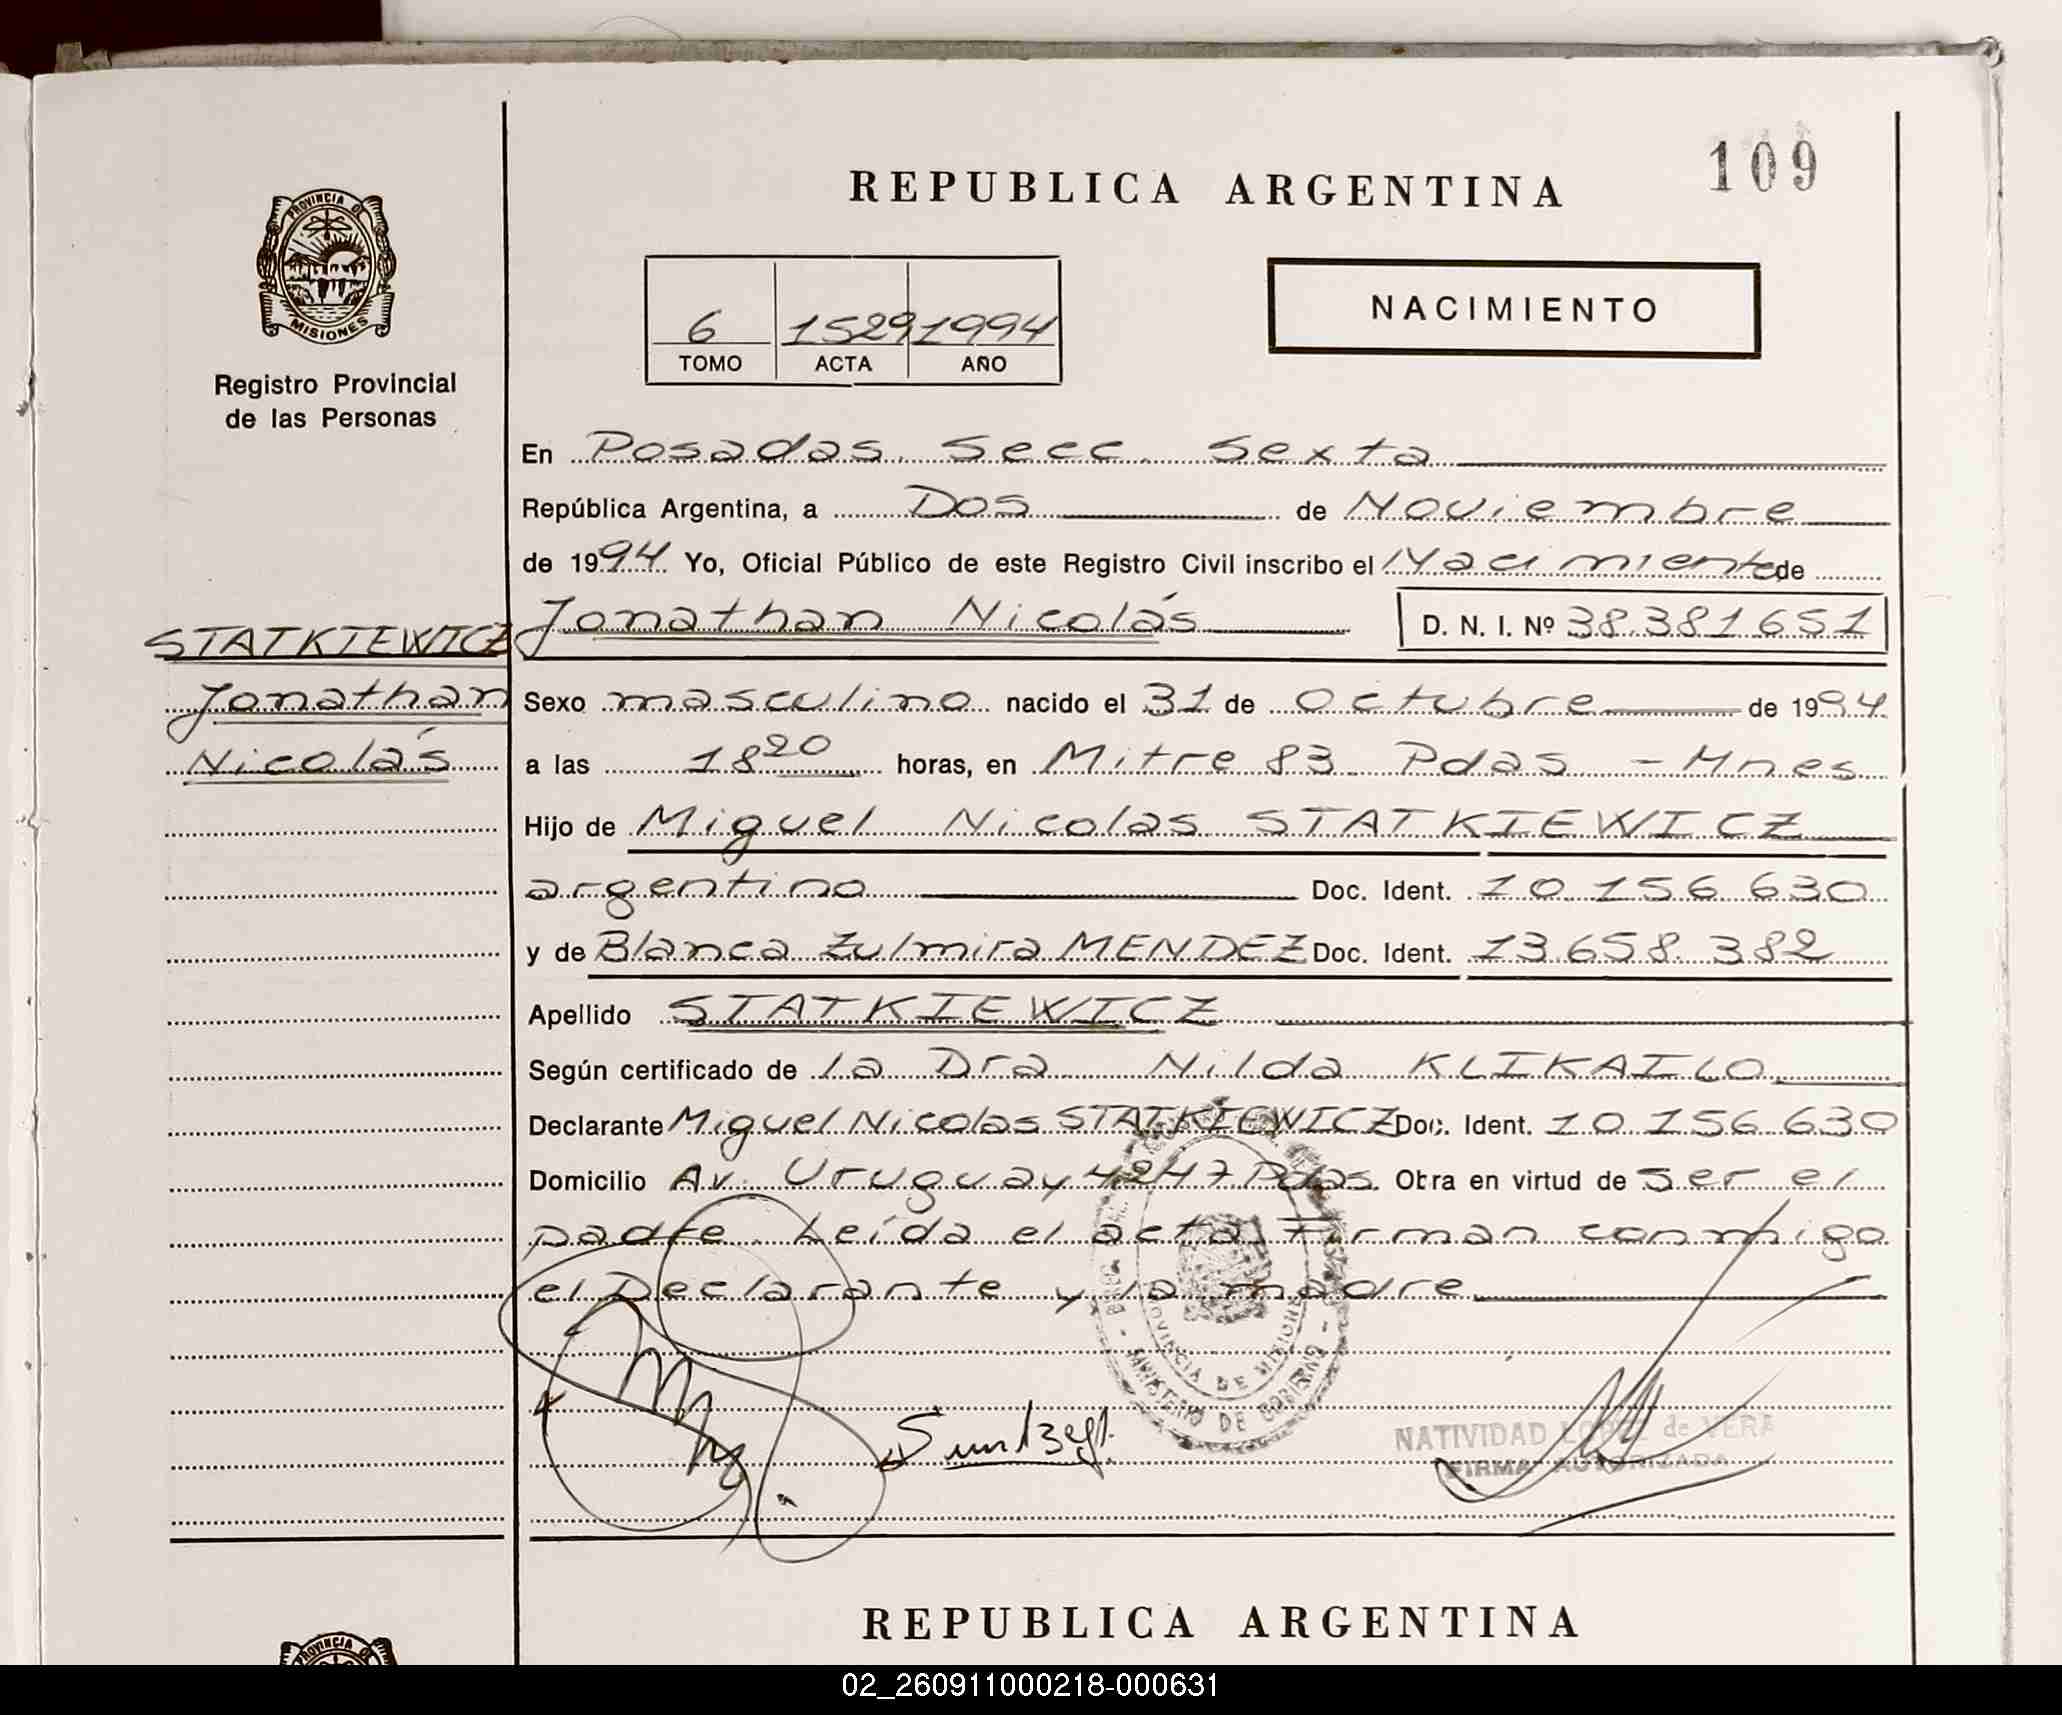 109
REPUBLICA ARGENTINA
PROVINCIA DE
MISIONES
Registro Provincial
de las Personas
6 1529 1994
TOMO ACTA AÑO
NACIMIENTO
En Posadas Secc. Sexta
República Argentina, a Dos de Noviembre
de 1994 Yo, Oficial Público de este Registro Civil inscribo el Nacimiento de
Jonathan Nicolás D. N. I. Nº 38.381651
STATKIEWICZ
Jonathan
Nicolás
Sexo masculino nacido el 31 de Octubre de 1994
a las 18 20 horas, en Mitre 83 Pdas - Mnes
Hijo de Miguel Nicolas STATKIEWICZ
argentino Doc. Ident. 10.156.630
y de Blanca Zulmira MENDEZ Doc. Ident. 13.658.382
Apellido STATKIEWICZ
Según certificado de la Dra Nilda KLIKAILO
Declarante Miguel Nicolas STATKIEWICZ Doc. Ident. 10.156.630
Domicilio Av. Uruguay 4247 Pdas. Obra en virtud de ser el
padre. Leída el acta Firman conmigo
el Declarante y la madre
PROVINCIA DE MISIONES
MINISTERIO DE GOBIERNO
NATIVIDAD LOPEZ de VERA
FIRMA AUTORIZADA
REPUBLICA ARGENTINA
PROVINCIA DE
02_260911000218-000631